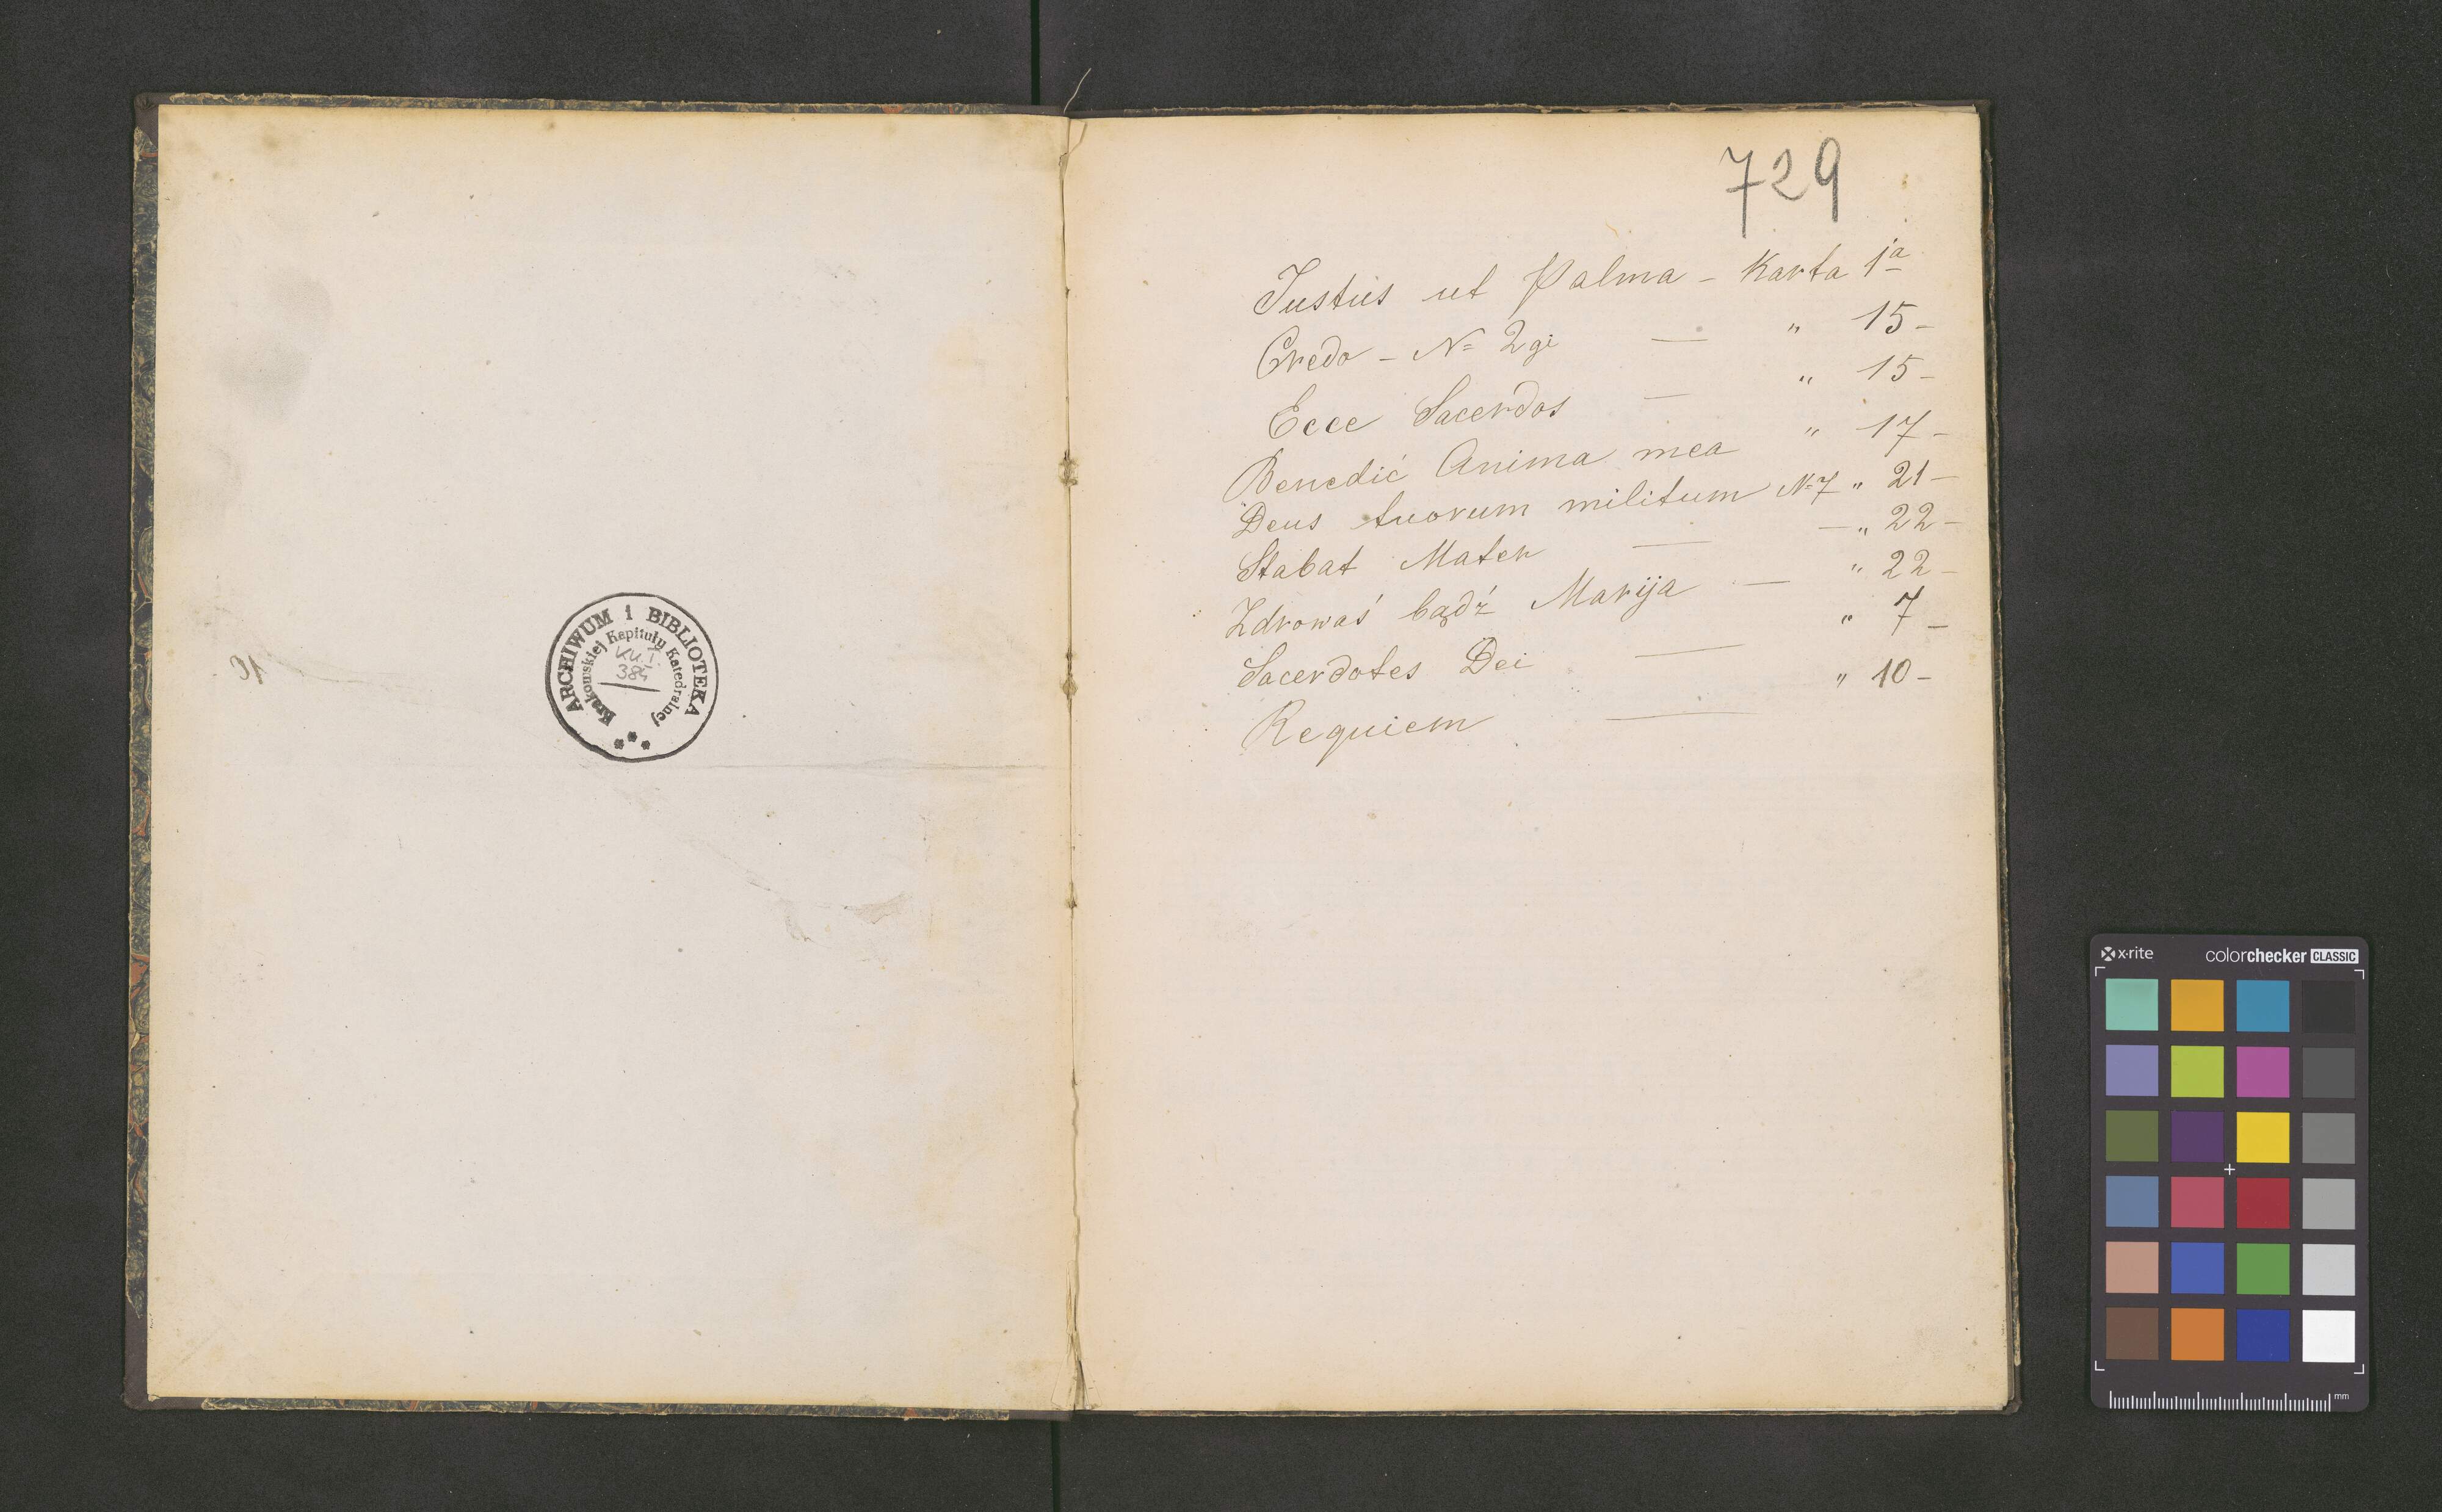 10
ARCHIWUM i BIBLIOTEKA
Krakowskiej Kapituły Katedralnej
KK.I.
384
729
Justus ut Palma - Karta 1a
Credo - No 2gi — " 15 -
Ecce Sacerdos — " 15 -
Benedić Anima mea " 17 -
Deus tuorum militum No 7 " 21 -
Stabat Mater — — " 22 -
Zdrowaś bądź Marija — " 22 -
Sacerdotes Dei — " 7 -
Requiem — " 10 -
x·rite colorchecker CLASSIC
mm